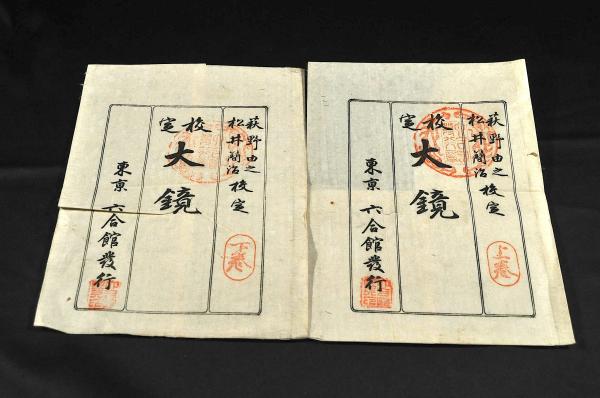 萩野由之
松井簡治 校定
校定
大鏡
上卷
東京 六合館發行
萩野由之
松井簡治 校定
校定
大鏡
下卷
東京 六合館發行